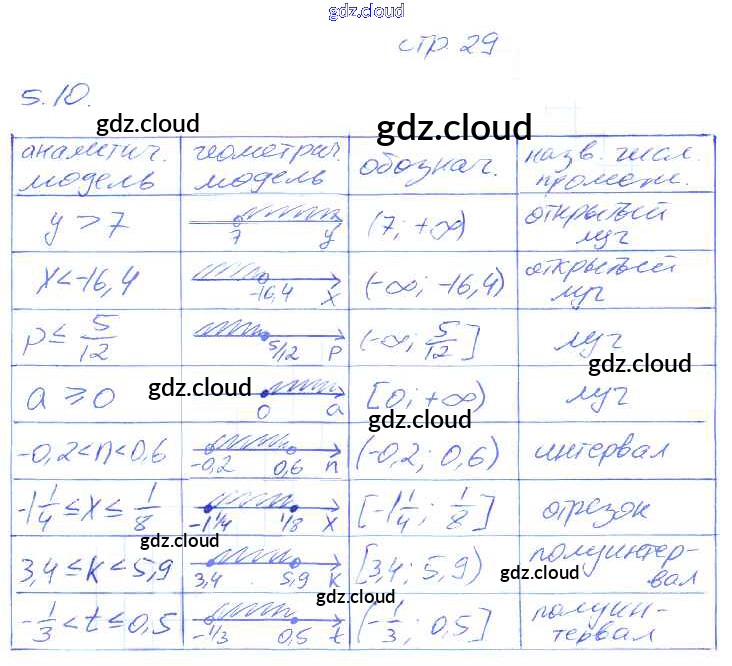 gdz.cloud
стр. 29
5.10.
gdz.cloud
gdz.cloud
аналитич. модель | геометрич. модель | обознач. | назв. числ. промеж.
y > 7 | 7 y | (7; +∞) | открытый луч
x < -16,4 | -16,4 x | (-∞; -16,4) | открытый луч
p ≤ 5/12 | 5/12 p | (-∞; 5/12] | луч
gdz.cloud
gdz.cloud
a ≥ 0 | 0 a | [0; +∞) | луч
gdz.cloud
-0,2 < n < 0,6 | -0,2 0,6 n | (-0,2; 0,6) | интервал
-1 1/4 ≤ x ≤ 1/8 | -1 1/4 1/8 x | [-1 1/4; 1/8] | отрезок
gdz.cloud
3,4 ≤ k < 5,9 | 3,4 5,9 k | [3,4; 5,9) | полуинтер-вал
gdz.cloud
gdz.cloud
-1/3 < t ≤ 0,5 | -1/3 0,5 t | (-1/3; 0,5] | полуин-тервал